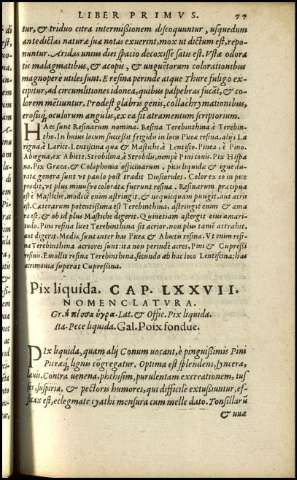 LIBER PRIMVS. 77
tur, & triduo citra intermissionem discoquuntur, usquedum
antedictas naturæ suæ notas exuerint. mox ut dictum est, repo-
nuntur. Aridas unius diei spacio decoxisse satis est. Vstæ odora
tis malagmatibus, & acopis, & unguentorum colorationibus
magnopere utiles sunt. E resina perinde atque Thure fuligo ex-
cipitur, ad circumlitiones idonea, quibus palpebræ fucãt, & co-
lorem mētiuntur. Prodest glabris genis, collachrymationibus,
erosisq́; oculorum angulis, ex ea fit atramentum scriptorium.
HAec sunt Resinarum nomina. Resina Terebinthina à Terebin-
tho. In huius locum successit frigidis in locis Picea resina, alijs La
rigna à Larice. Lentiscina quæ & Mastiche à Lentisco. Pinea è Pino.
Abiegna, ex Abiete. Strobilina à Strobilis, nempe Pini cuius. Pix Hispa-
na. Pix Græca. & Colophonia officinarum, plus liquidæ & igne duo
genera sunt ut paulo post tradit Diuscorides. Colores eo in pice
prodit, ut plus minusve colorata fuerunt resina. Resinarum præcipua
est Mastiche, modicè enim astringit, & usquequam pungit, aut acris
est. Cæterarum potentissima est Terebinthina, astringit enim & ama
ra est, & ob id plus Mastiche digerit. Quinetiam astergit eius amari-
tudo. Pini resina licet Terebinthina sit acrior, non plus tamē attrahit,
aut digerit. Media sunt inter has Picea & Abietis resina. Vt enim resi-
na Terebinthina acriores sunt: ita non perinde acres, Pini & Cupressi
resinis. Emollit resina Terebinthina, secundo ab hac loco Lentiscina: hæc
acrimonia superat Cupressina.
Pix liquida. CAP. LXXVII.
NOMENCLATVRA.
Gr. ἡ πίσσα ὑγρά. Lat. & Offic. Pix liquida.
Ita. Pece liquida. Gal. Poix fondue.
PIx liquida, quam alij Conum uocant, è pinguissimis Pini
Piceæq́; lignis cōgregatur. Optima est splendens, syncera,
læuis. Contra uenena, phthisim, purulentam excreationem, tus-
ses, suspiria, & pectoris humores, qui difficile extussiuntur, ef-
ficax est, eclegmate cyathi mensura cum melle dato. Tonsillarũ
& uuæ